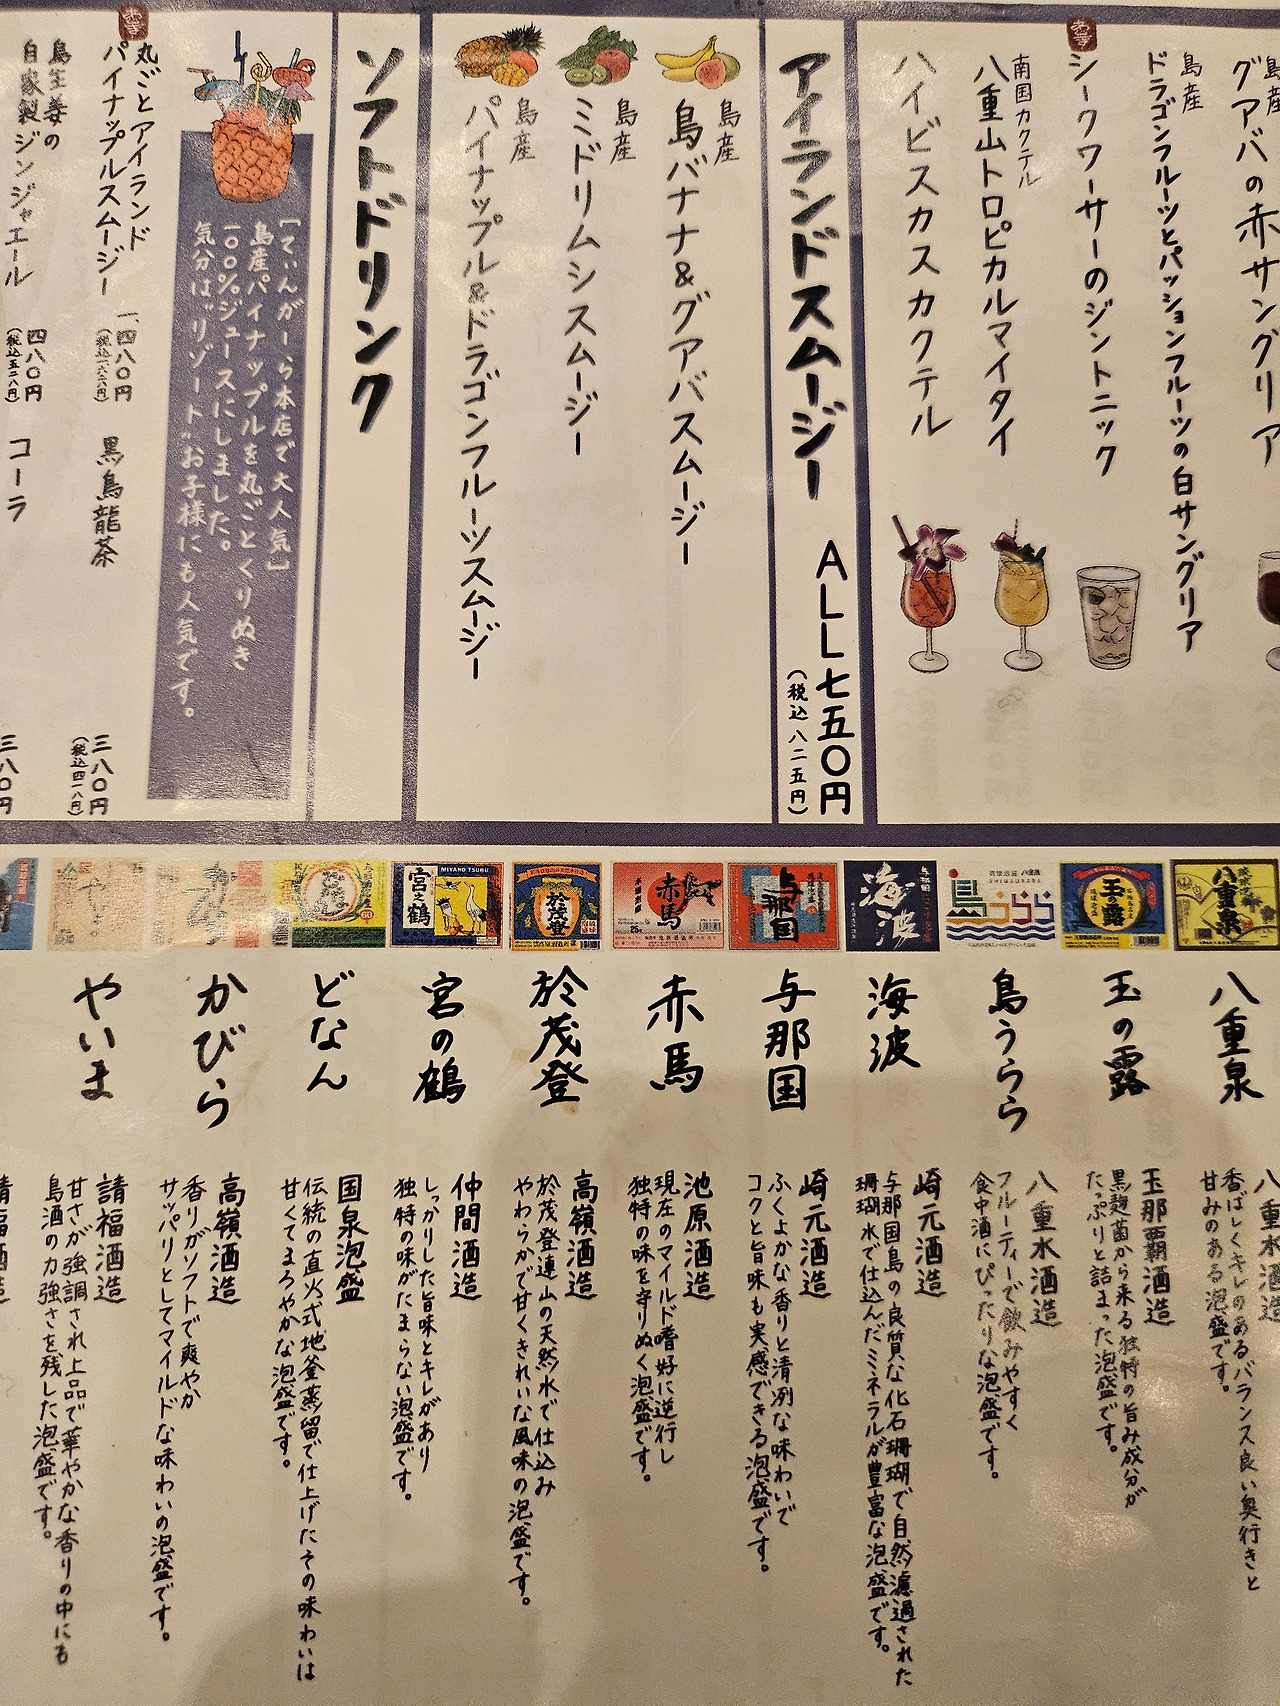 島産
グアバの赤サングリア
島産
ドラゴンフルーツとパッションフルーツの白サングリア
シークワーサーのジントニック
南国カクテル
八重山トロピカルマイタイ
ハイビスカスカクテル
アイランドスムージー ALL七五〇円
(税込八二五円)
島産
島バナナ&グアバスムージー
島産
ミドリムシスムージー
島産
パイナップル&ドラゴンフルーツスムージー
ソフトドリンク
[てぃんがーら本店で大人気]
島産パイナップルを丸ごとくりぬき
一〇〇%ジュースにしました。
気分は"リゾート"お子様にも人気です。
丸ごとアイランド
パイナップルスムージー
一、四八〇円
(税込一、六二八円)
黒烏龍茶
三八〇円
(税込四一八円)
島生姜の
自家製ジンジャエール
四八〇円
(税込五二八円)
コーラ
三八〇円
八重泉
玉の露
島うらら
SHIMAURARA
海波
与那国
赤馬
於茂登
MIYANO TSURU
宮之鶴
八重泉
八重泉酒造
香ばしくキレのあるバランス良い奥行きと
甘みのある泡盛です。
玉の露
玉那覇酒造
黒麹菌から来る独特の旨み成分が
たっぷりと詰まった泡盛です。
島うらら
八重水酒造
フルーティーで飲みやすく
食中酒にぴったりな泡盛です。
海波
崎元酒造
与那国島の良質な化石珊瑚で自然濾過された
珊瑚水で仕込んだミネラルが豊富な泡盛です。
与那国
崎元酒造
ふくよかな香りと清冽な味わいで
コクと旨味も実感できる泡盛です。
赤馬
池原酒造
現在のマイルド嗜好に逆行し
独特の味を守りぬく泡盛です。
於茂登
高嶺酒造
於茂登連山の天然水で仕込み
やわらかで甘くきれいな風味の泡盛です。
宮の鶴
仲間酒造
しっかりした旨味とキレがあり
独特の味がたまらない泡盛です。
どなん
国泉泡盛
伝統の直火式地釜蒸留で仕上げたその味わいは
甘くてまろやかな泡盛です。
かびら
高嶺酒造
香りがソフトで爽やか
サッパリとしてマイルドな味わいの泡盛です。
やいま
請福酒造
甘さが強調され上品で華やかな香りの中にも
島酒の力強さを残した泡盛です。
請福酒造